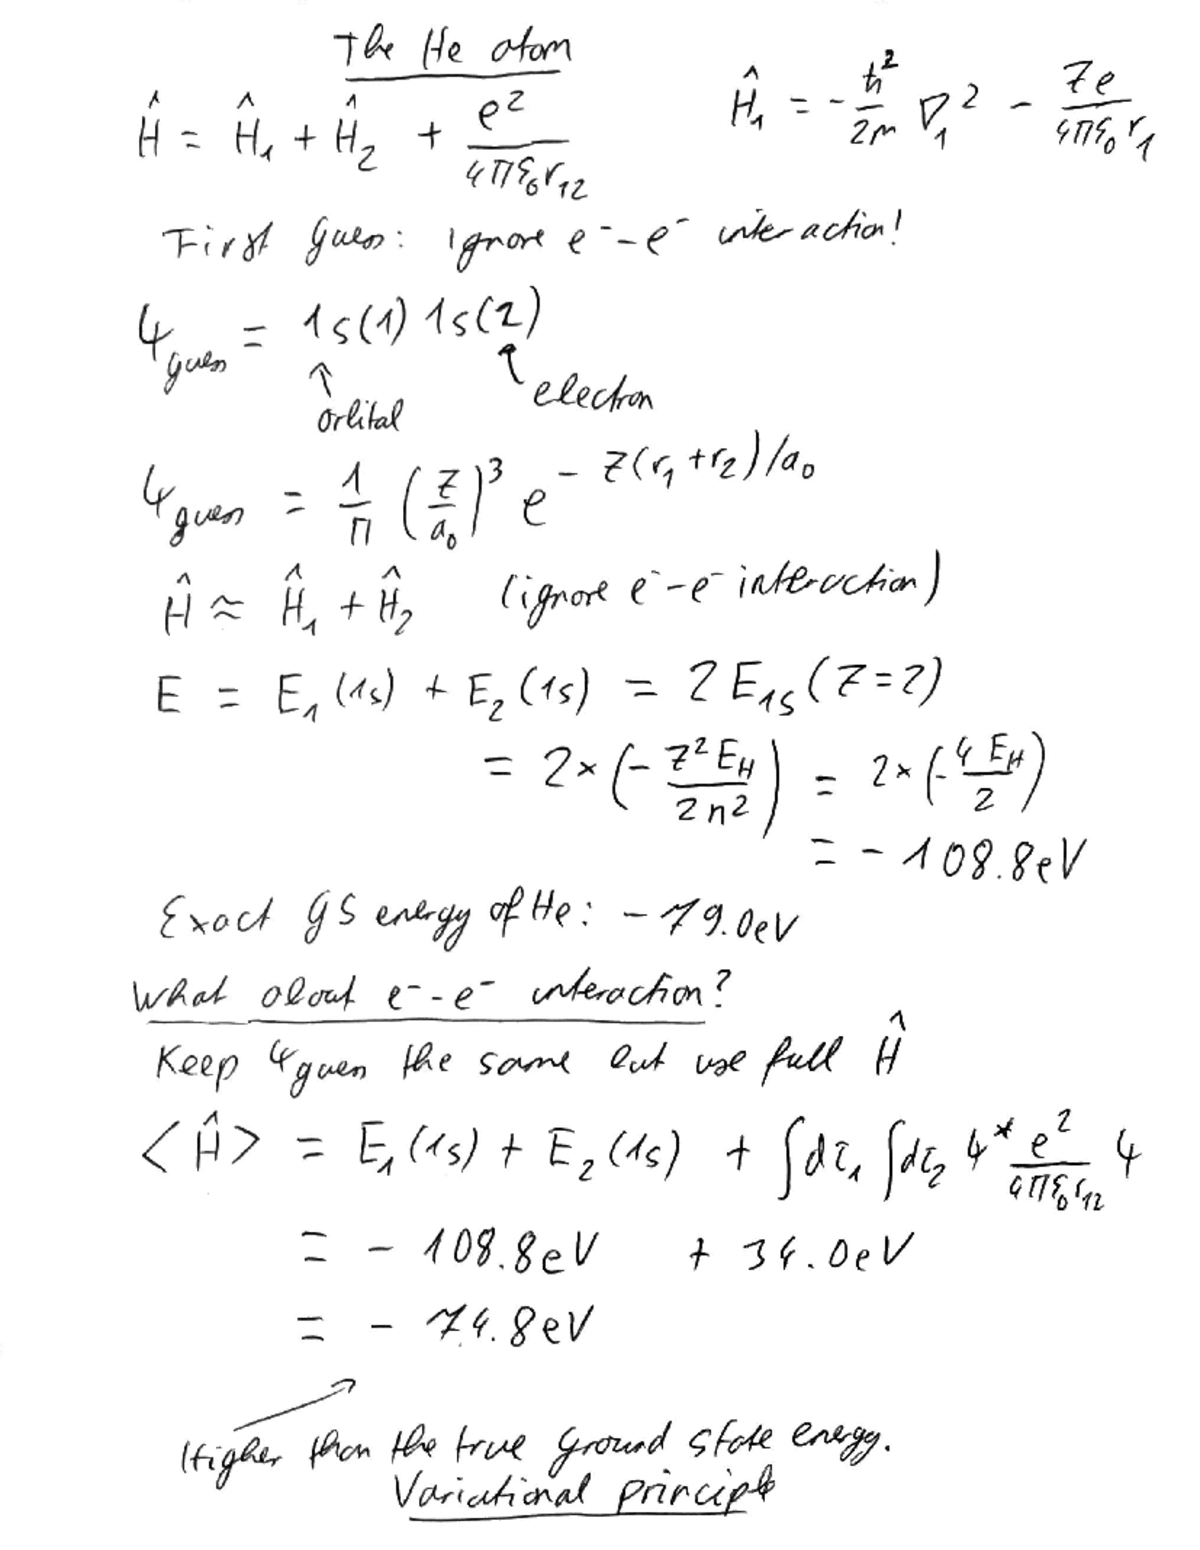 The He atom
Ĥ = Ĥ₁ + Ĥ₂ + e²/(4πε₀r₁₂)    Ĥ₁ = -ħ²/2m ∇₁² - Ze/(4πε₀r₁)
First guess: ignore e⁻-e⁻ interaction!
ψguess = 1s(1) 1s(2)
↑ orbital    ↑ electron
ψguess = 1/π (Z/a₀)³ e^{-Z(r₁+r₂)/a₀}
Ĥ ≈ Ĥ₁ + Ĥ₂ (ignore e⁻-e⁻ interaction)
E = E₁(1s) + E₂(1s) = 2E₁s(Z=2)
= 2×(-Z²E_H/2n²) = 2×(-4E_H/2)
= -108.8eV
Exact GS energy of He: -79.0eV
What about e⁻-e⁻ interaction?
Keep ψguess the same but use full Ĥ
<Ĥ> = E₁(1s) + E₂(1s) + ∫dτ₁ ∫dτ₂ ψ* e²/(4πε₀r₁₂) ψ
= -108.8eV + 34.0eV
= -74.8eV
Higher than the true ground state energy.
Variational principle